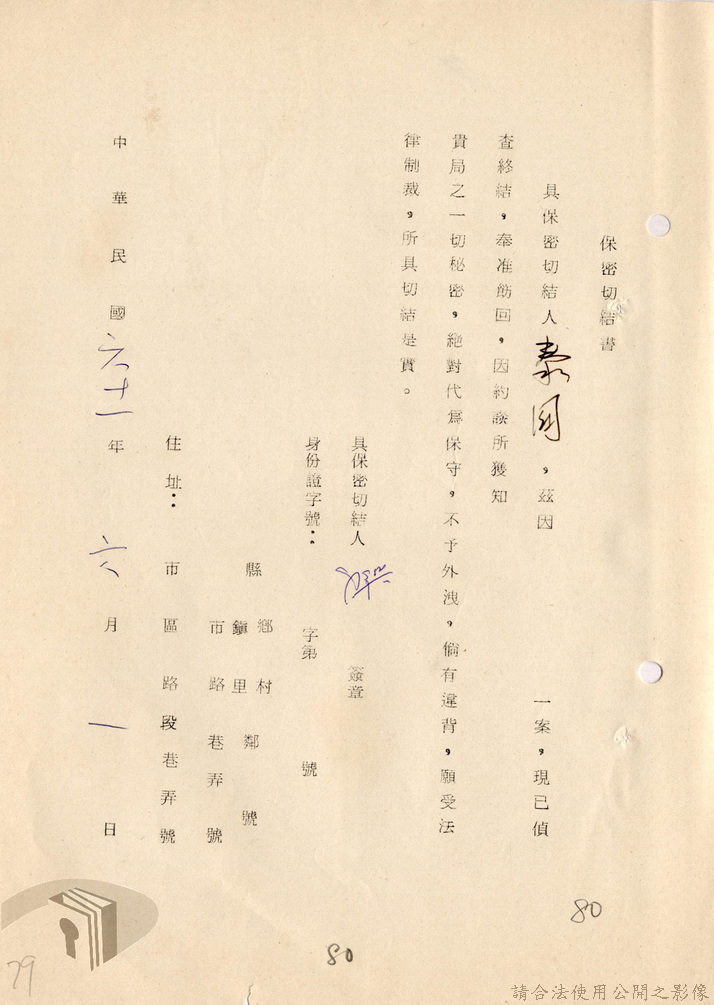 保密切結書
具保密切結人泰国,茲因 一案,現已偵
查終結,奉准飭回,因約談所獲知
貴局之一切秘密,絕對代為保守,不予外洩,倘有違背,願受法
律制裁,所具切結是實。
具保密切結人 簽章
身份證字號: 字第 號
縣 鄉鎮 村里 鄰 號
市 路 巷 弄 號
住址: 市 區 路 段 巷 弄 號
中華民國六十一年六月一日
80
80
79
請合法使用公開之影像